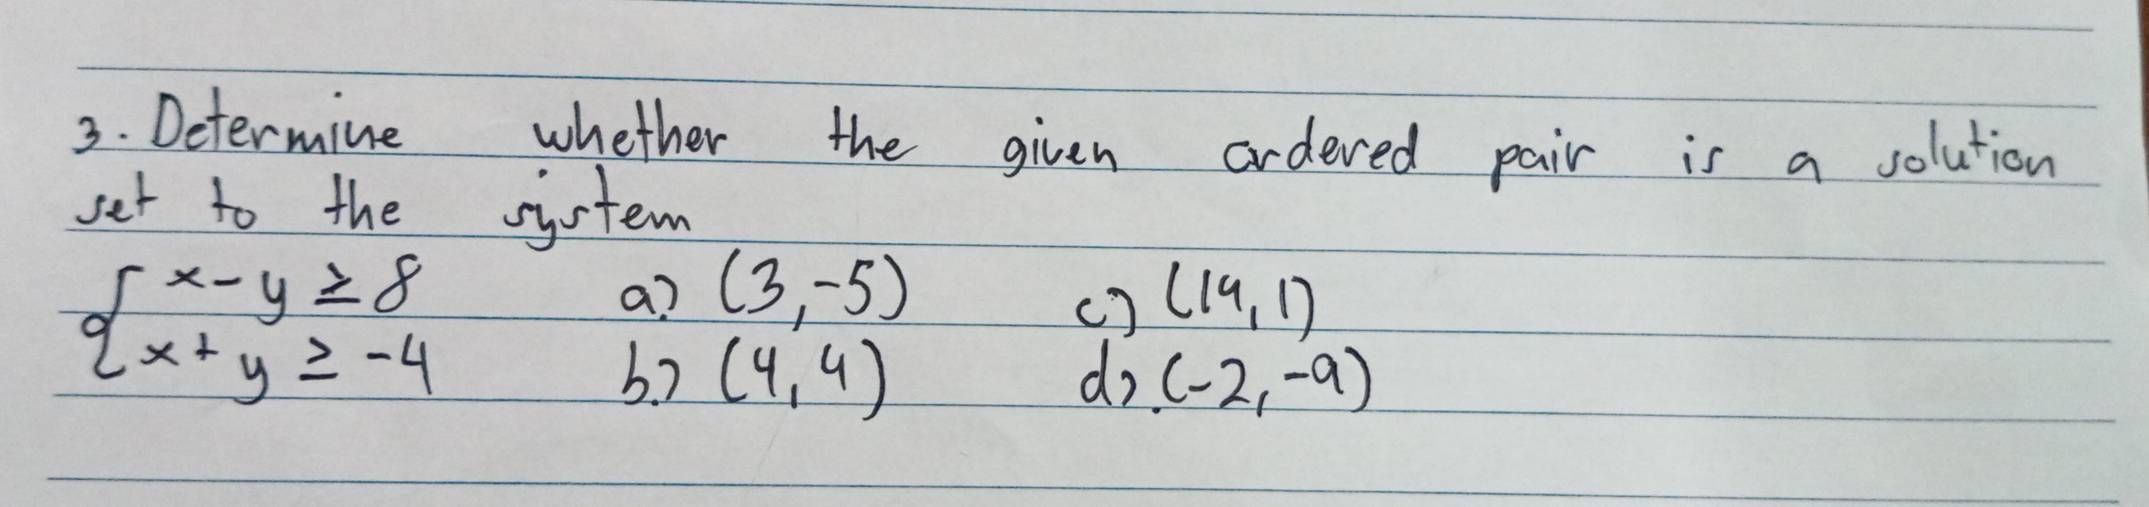 3. Determine whether the given ordered pair is a solution
set to the system
{ x - y ≥ 8 a.) (3, -5) c.) (14, 1)
{ x + y ≥ -4 b.) (4, 4) d.) (-2, -9)